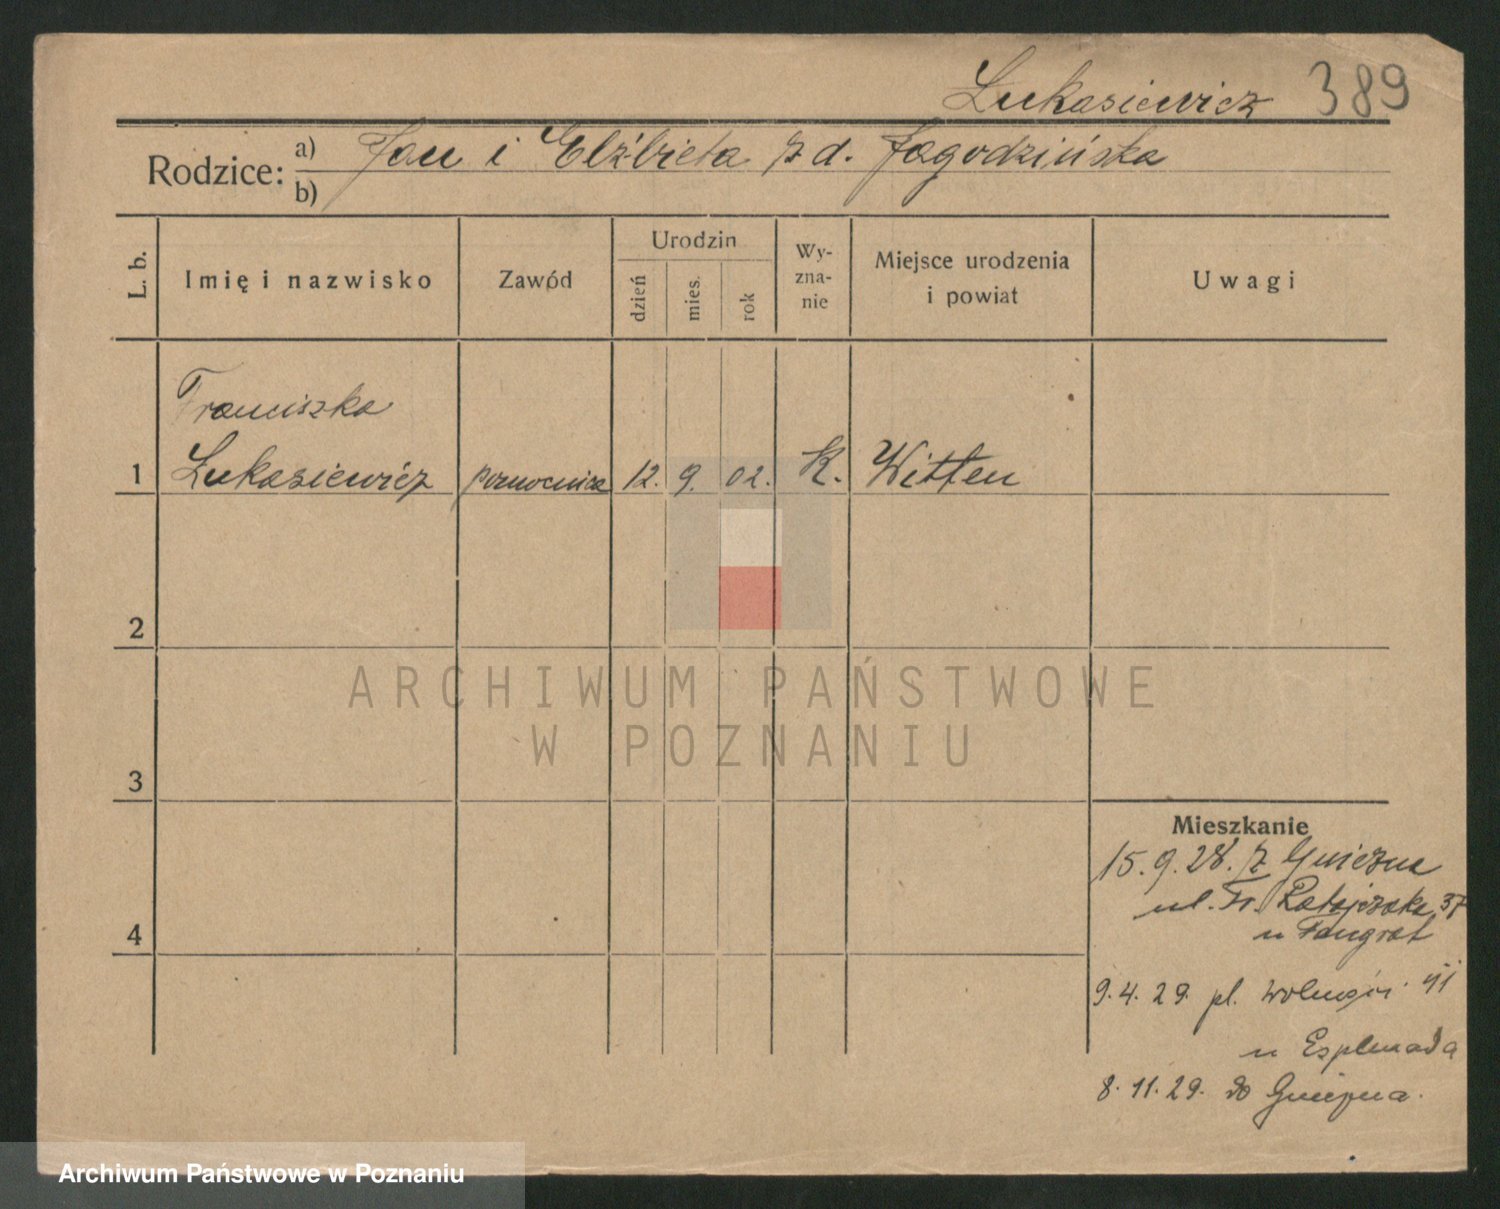 Łukasiewicz 389
Rodzice: a) Jan i Elżbieta z d. Jagodzińska
b)
L. b. Imię i nazwisko Zawód Urodzin dzień mies. rok Wy-zna-nie Miejsce urodzenia i powiat Uwagi
Franciszka
1 Łukasiewicz pomocnica 12. 9. 02. K. Witten
2
ARCHIWUM PAŃSTWOWE
W POZNANIU
3
Mieszkanie
15.9.28. z Gniezna
ul. Fr. Ratajczaka 37
4
u Pangrat
9.4.29. pl. Wolności 11
u Esplanada
8.11.29. do Gniezna.
Archiwum Państwowe w Poznaniu